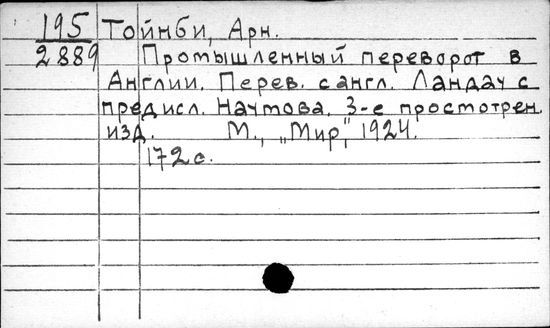 195 Тойнби, Арн.
2889 Промышленный переворот в
Англии. Перев. с англ. Ландау с
предисл. Наумова. 3-е просмотрен.
изд. М., „Мир", 1924.
172 с.